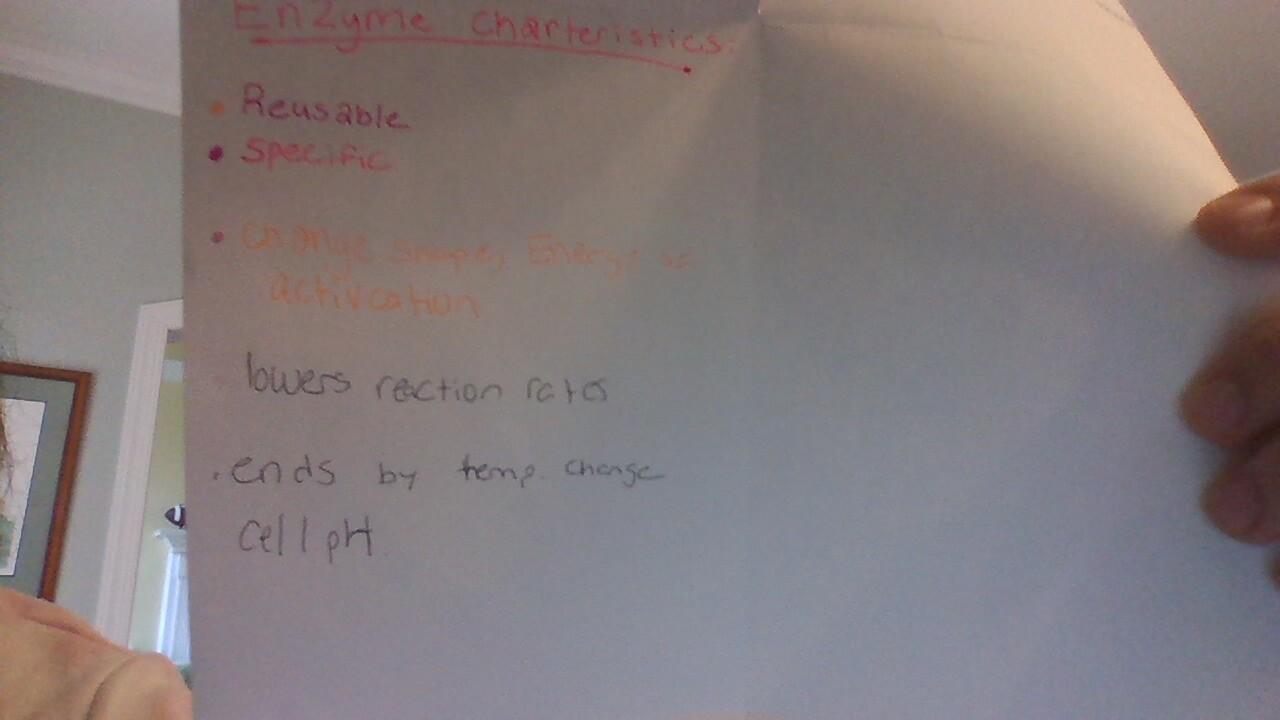 Enzyme charteristics:
• Reusable
• Specific
• change shape, Energy
activcation
lowers reaction rates
. ends by temp. change
cell pH